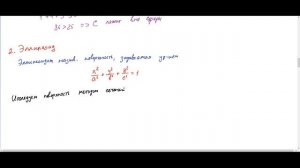 36 > 25 => C лежит вне сферы
2. Эллипсоид
Эллипсоидом назыв. поверхность, задаваемая ур-ем
x²/a² + y²/b² + z²/c² = 1
Исследуем поверхность методом сечений